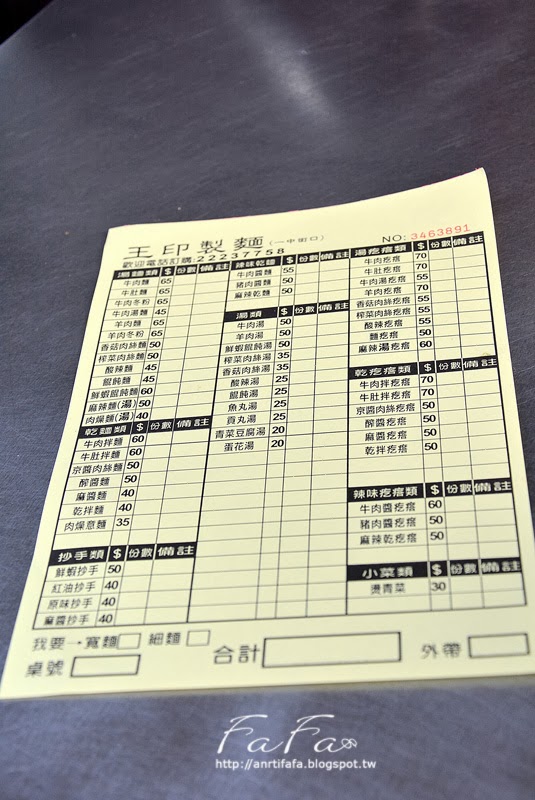 王印製麵(一中街口)
NO: 3463891
歡迎電話訂購:22237758
湯麵類 $ 份數 備註
牛肉麵 65
牛肚麵 65
牛肉冬粉 65
牛肉湯麵 45
羊肉麵 65
羊肉冬粉 65
香菇肉絲麵 50
榨菜肉絲麵 50
酸辣麵 45
餛飩麵 45
鮮蝦餛飩麵 60
麻辣麵(湯) 50
肉燥麵(湯) 40
乾麵類 $ 份數 備註
牛肉拌麵 60
牛肚拌麵 60
京醬肉絲麵 50
醡醬麵 50
麻醬麵 40
乾拌麵 40
肉燥意麵 35
抄手類 $ 份數 備註
鮮蝦抄手 50
紅油抄手 40
原味抄手 40
麻醬抄手 40
辣味乾麵 $ 份數 備註
牛肉醬麵 55
豬肉醬麵 50
麻辣乾麵 50
湯類 $ 份數 備註
牛肉湯 50
羊肉湯 50
鮮蝦餛飩湯 50
榨菜肉絲湯 35
香菇肉絲湯 35
酸辣湯 25
餛飩湯 25
魚丸湯 25
貢丸湯 25
青菜豆腐湯 20
蛋花湯 20
湯疙瘩類 $ 份數 備註
牛肉疙瘩 70
牛肚疙瘩 70
牛肉湯疙瘩 55
羊肉疙瘩 70
香菇肉絲疙瘩 55
榨菜肉絲疙瘩 55
酸辣疙瘩 55
麵疙瘩 50
麻辣湯疙瘩 60
乾疙瘩類 $ 份數 備註
牛肉拌疙瘩 70
牛肚拌疙瘩 70
京醬肉絲疙瘩 50
醡醬疙瘩 50
麻醬疙瘩 50
乾拌疙瘩 50
辣味疙瘩類 $ 份數 備註
牛肉醬疙瘩 60
豬肉醬疙瘩 50
麻辣乾疙瘩 50
小菜類 $ 份數 備註
燙青菜 30
我要→寬麵 細麵
桌號 合計 外帶
FaFa
http://anrtifafa.blogspot.tw